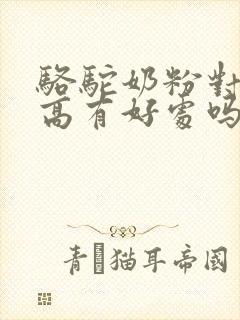 駱駝奶粉對
高有好處嗎
青猫耳帝國